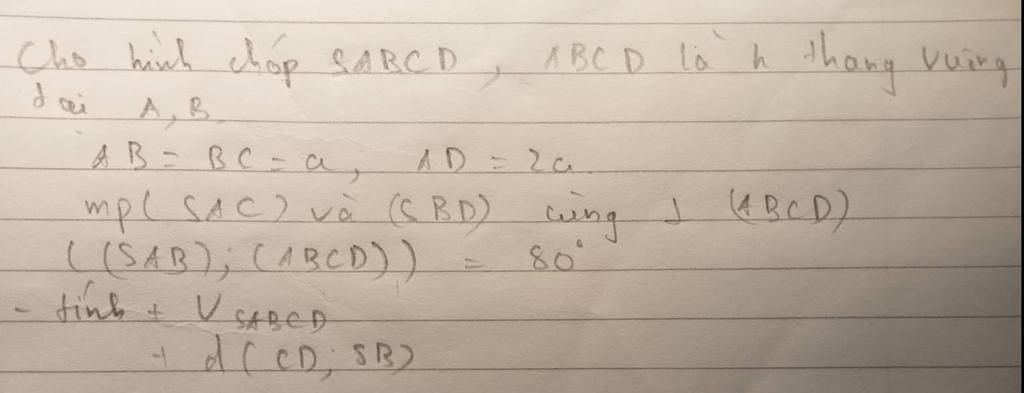 Cho hình chóp SABCD, ABCD là h thang vuông
tại A, B
AB = BC = a, AD = 2a.
mp(SAC) và (SBD) cùng ⊥ (ABCD)
((SAB); (ABCD)) = 80°
- tính + V SABCD
+ d(CD; SB)